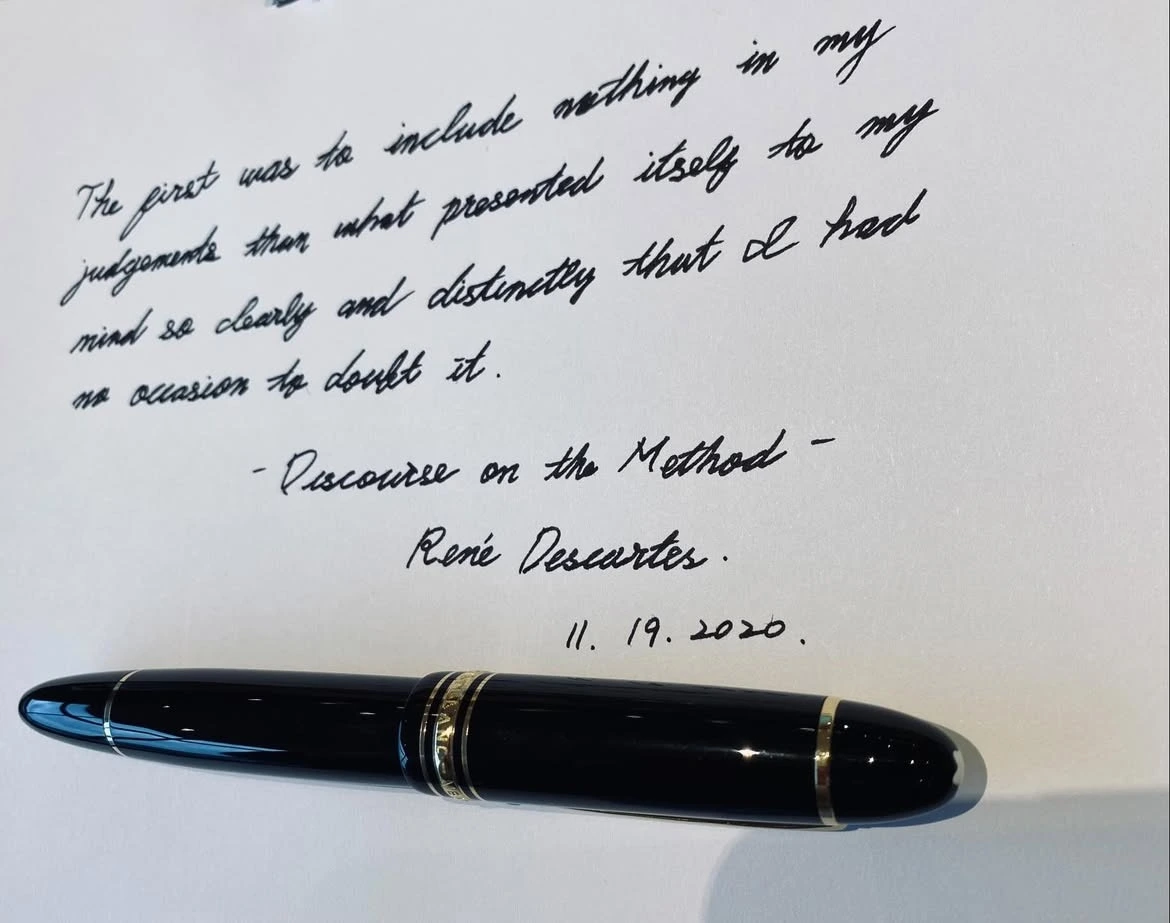 The first was to include nothing in my
judgements than what presented itself to my
mind so clearly and distinctly that I had
no occasion to doubt it.
- Discourse on the Method -
René Descartes.
11. 19. 2020.